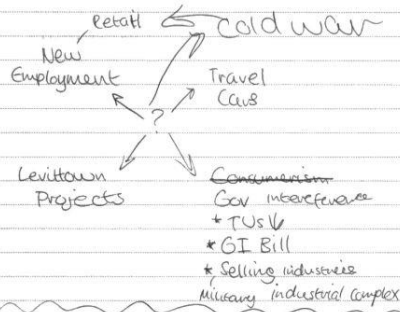 Retail
Cold war
New
Employment
Travel
Cars
?
Levittown
Projects
Consumerism
Gov intereference
* TUs ↓
* GI Bill
* Selling industries
Military industrial complex